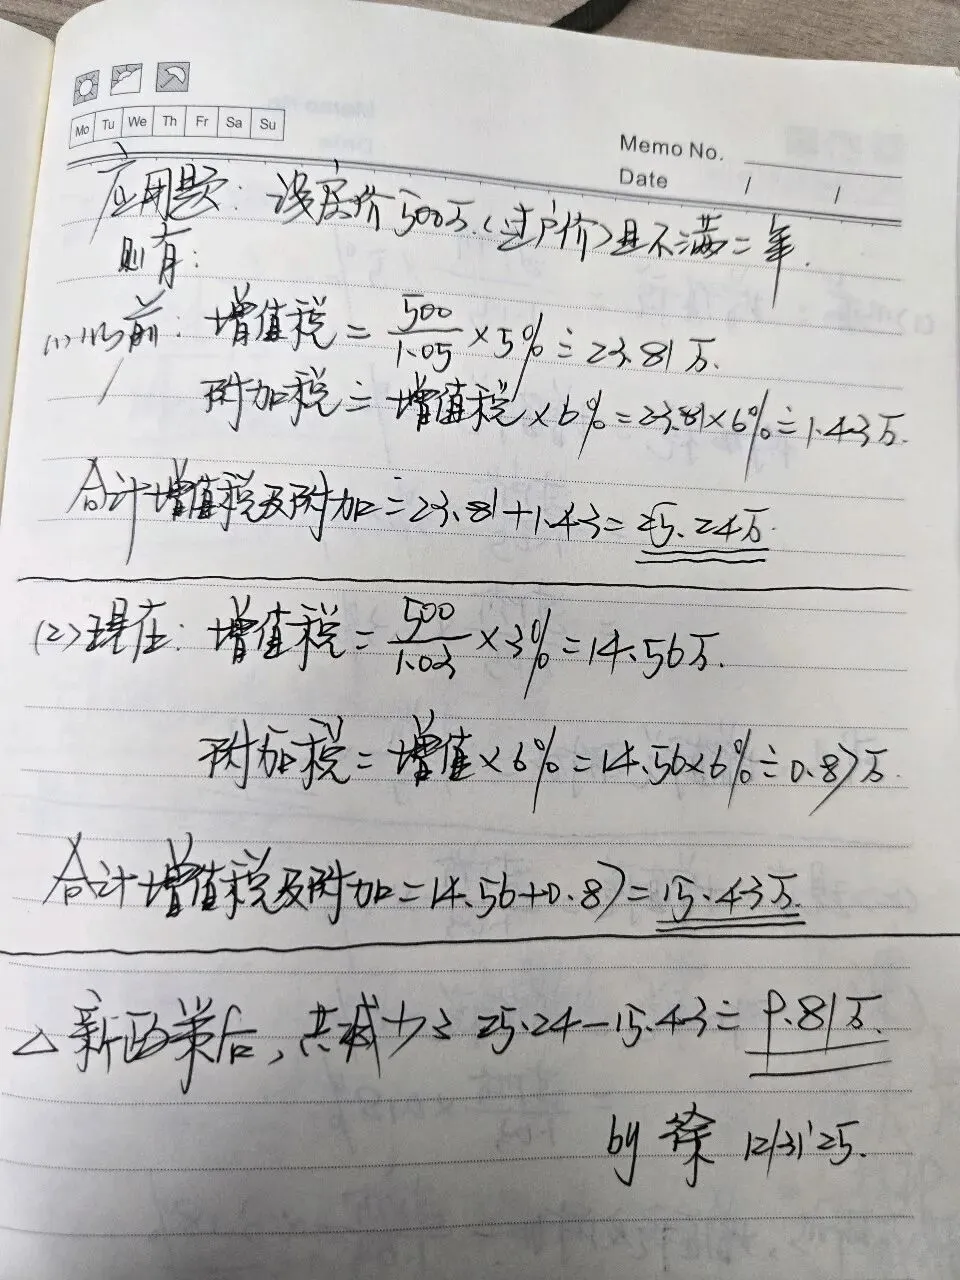 Mo Tu We Th Fr Sa Su
Memo No.
Date / /
应用题: 设房价500万.(过户价)且不满二年.
则有:
(1)以前: 增值税=500/1.05×5%≐23.81万.
附加税≐增值税×6%=23.81×6%≐1.43万.
合计增值税及附加≐23.81+1.43=25.24万
(2)现在: 增值税=500/1.03×3%=14.56万.
附加税=增值×6%=14.56×6%≐0.87万
合计增值税及附加=14.56+0.87=15.43万
△新政策后,共减少≥25.24-15.43≐9.81万.
by 徐 12/31'25.